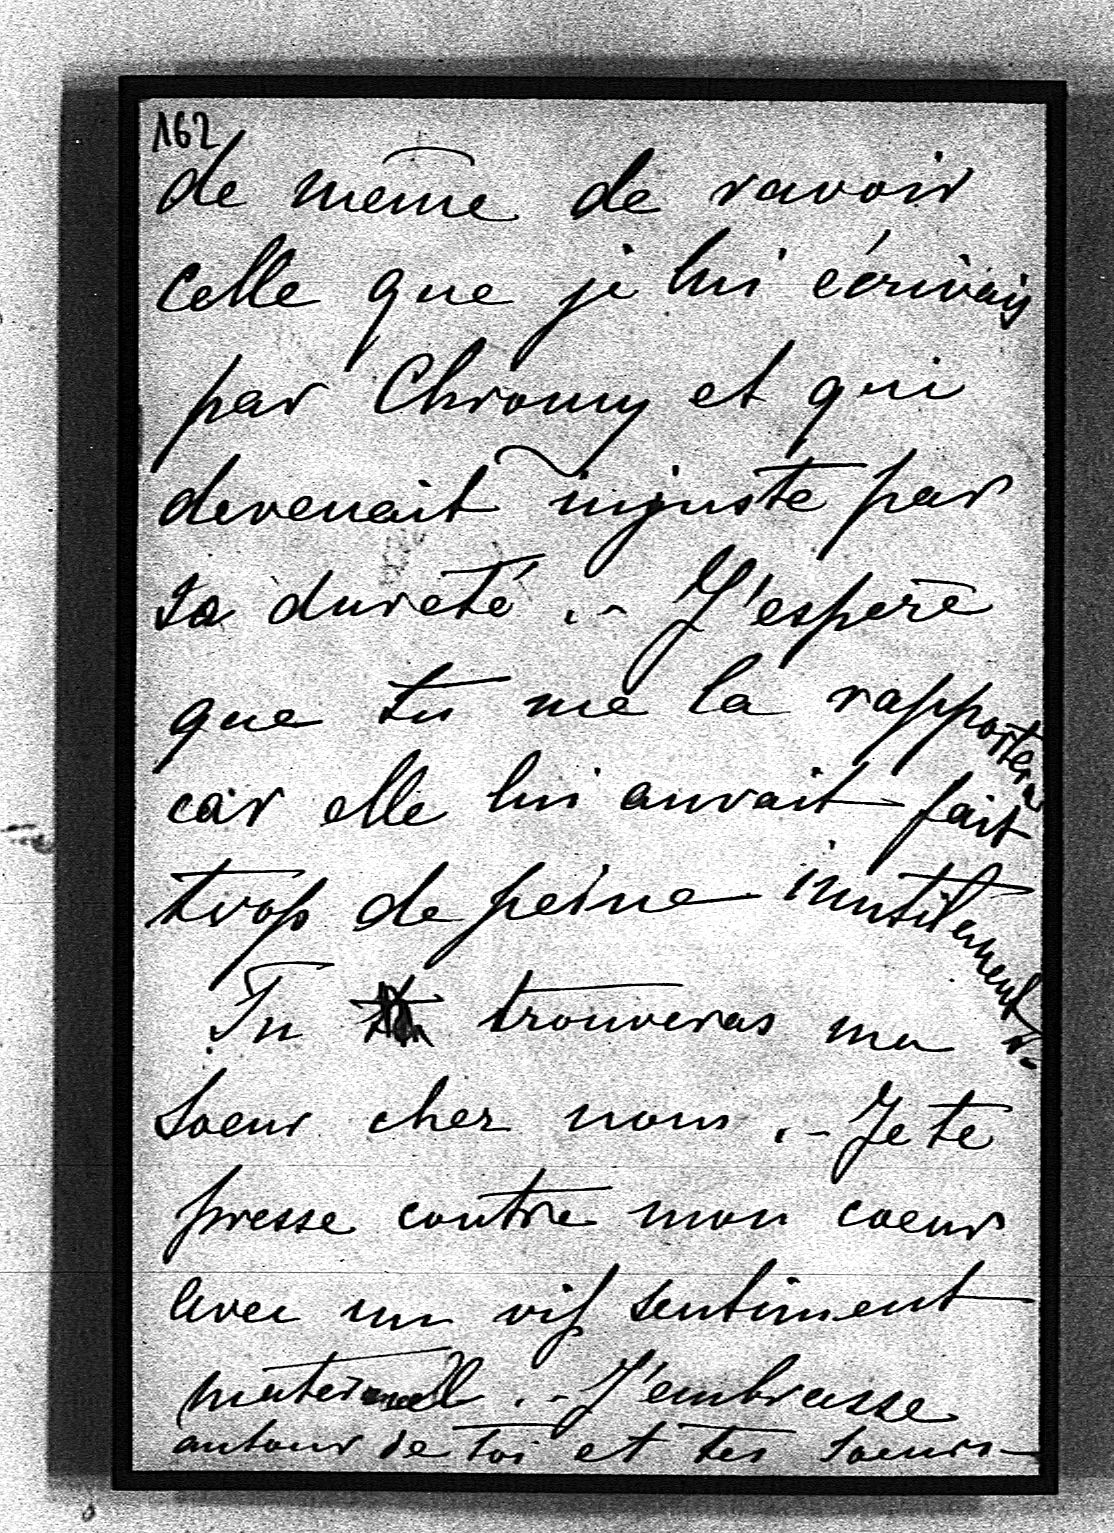 162
de même de ravoir
celle que je lui écrivais
par Chromy et qui
devenait injuste par
sa dureté .- J'espère
que tu me la rapporteras
car elle lui aurait fait
trop de peine inutilement.-
Tu trouveras ma
soeur chez nous .- Je te
presse contre mon coeur
avec un vif sentiment
maternel .- J'embrasse
autour de toi et tes soeurs-